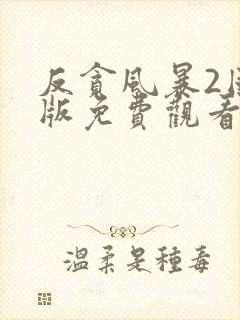 反貪風暴2
版免費觀看
溫柔是種毒